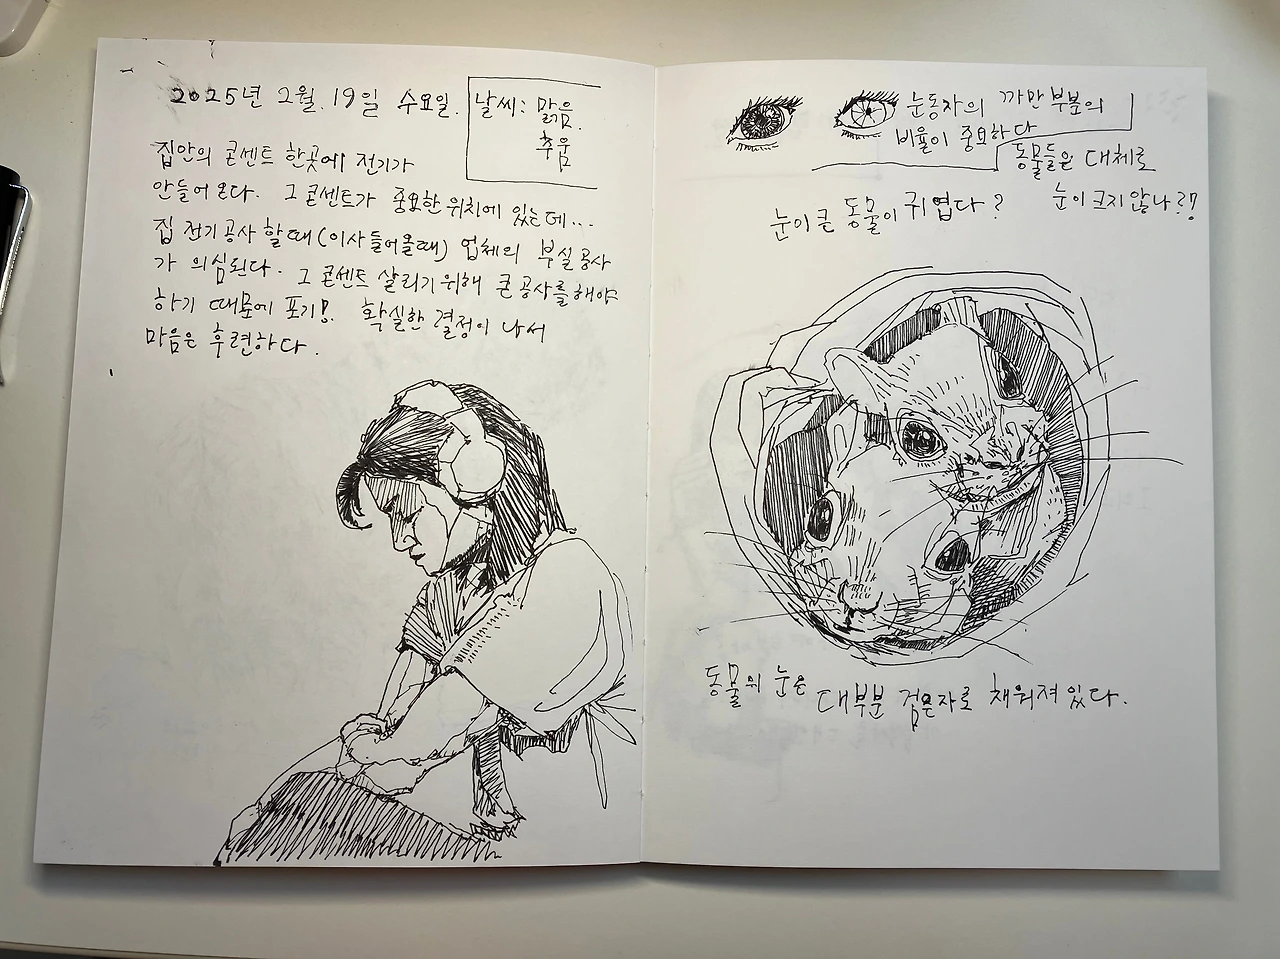 2025년 2월 19일 수요일.
날씨: 맑음.
추움
집안의 콘센트 한곳에 전기가
안들어 온다. 그 콘센트가 중요한 위치에 있는데...
집 전기공사 할때(이사들어올때) 업체의 부실공사
가 의심된다. 그 콘센트 살리기위해 큰공사를 해야
하기 때문에 포기!. 확실한 결정이 나서
마음은 후련하다.
눈동자의 까만부분의
비율이 중요하다
동물들은 대체로
눈이 크지않나?!
눈이큰 동물이 귀엽다?
동물의 눈은 대부분 검은자로 채워져있다.